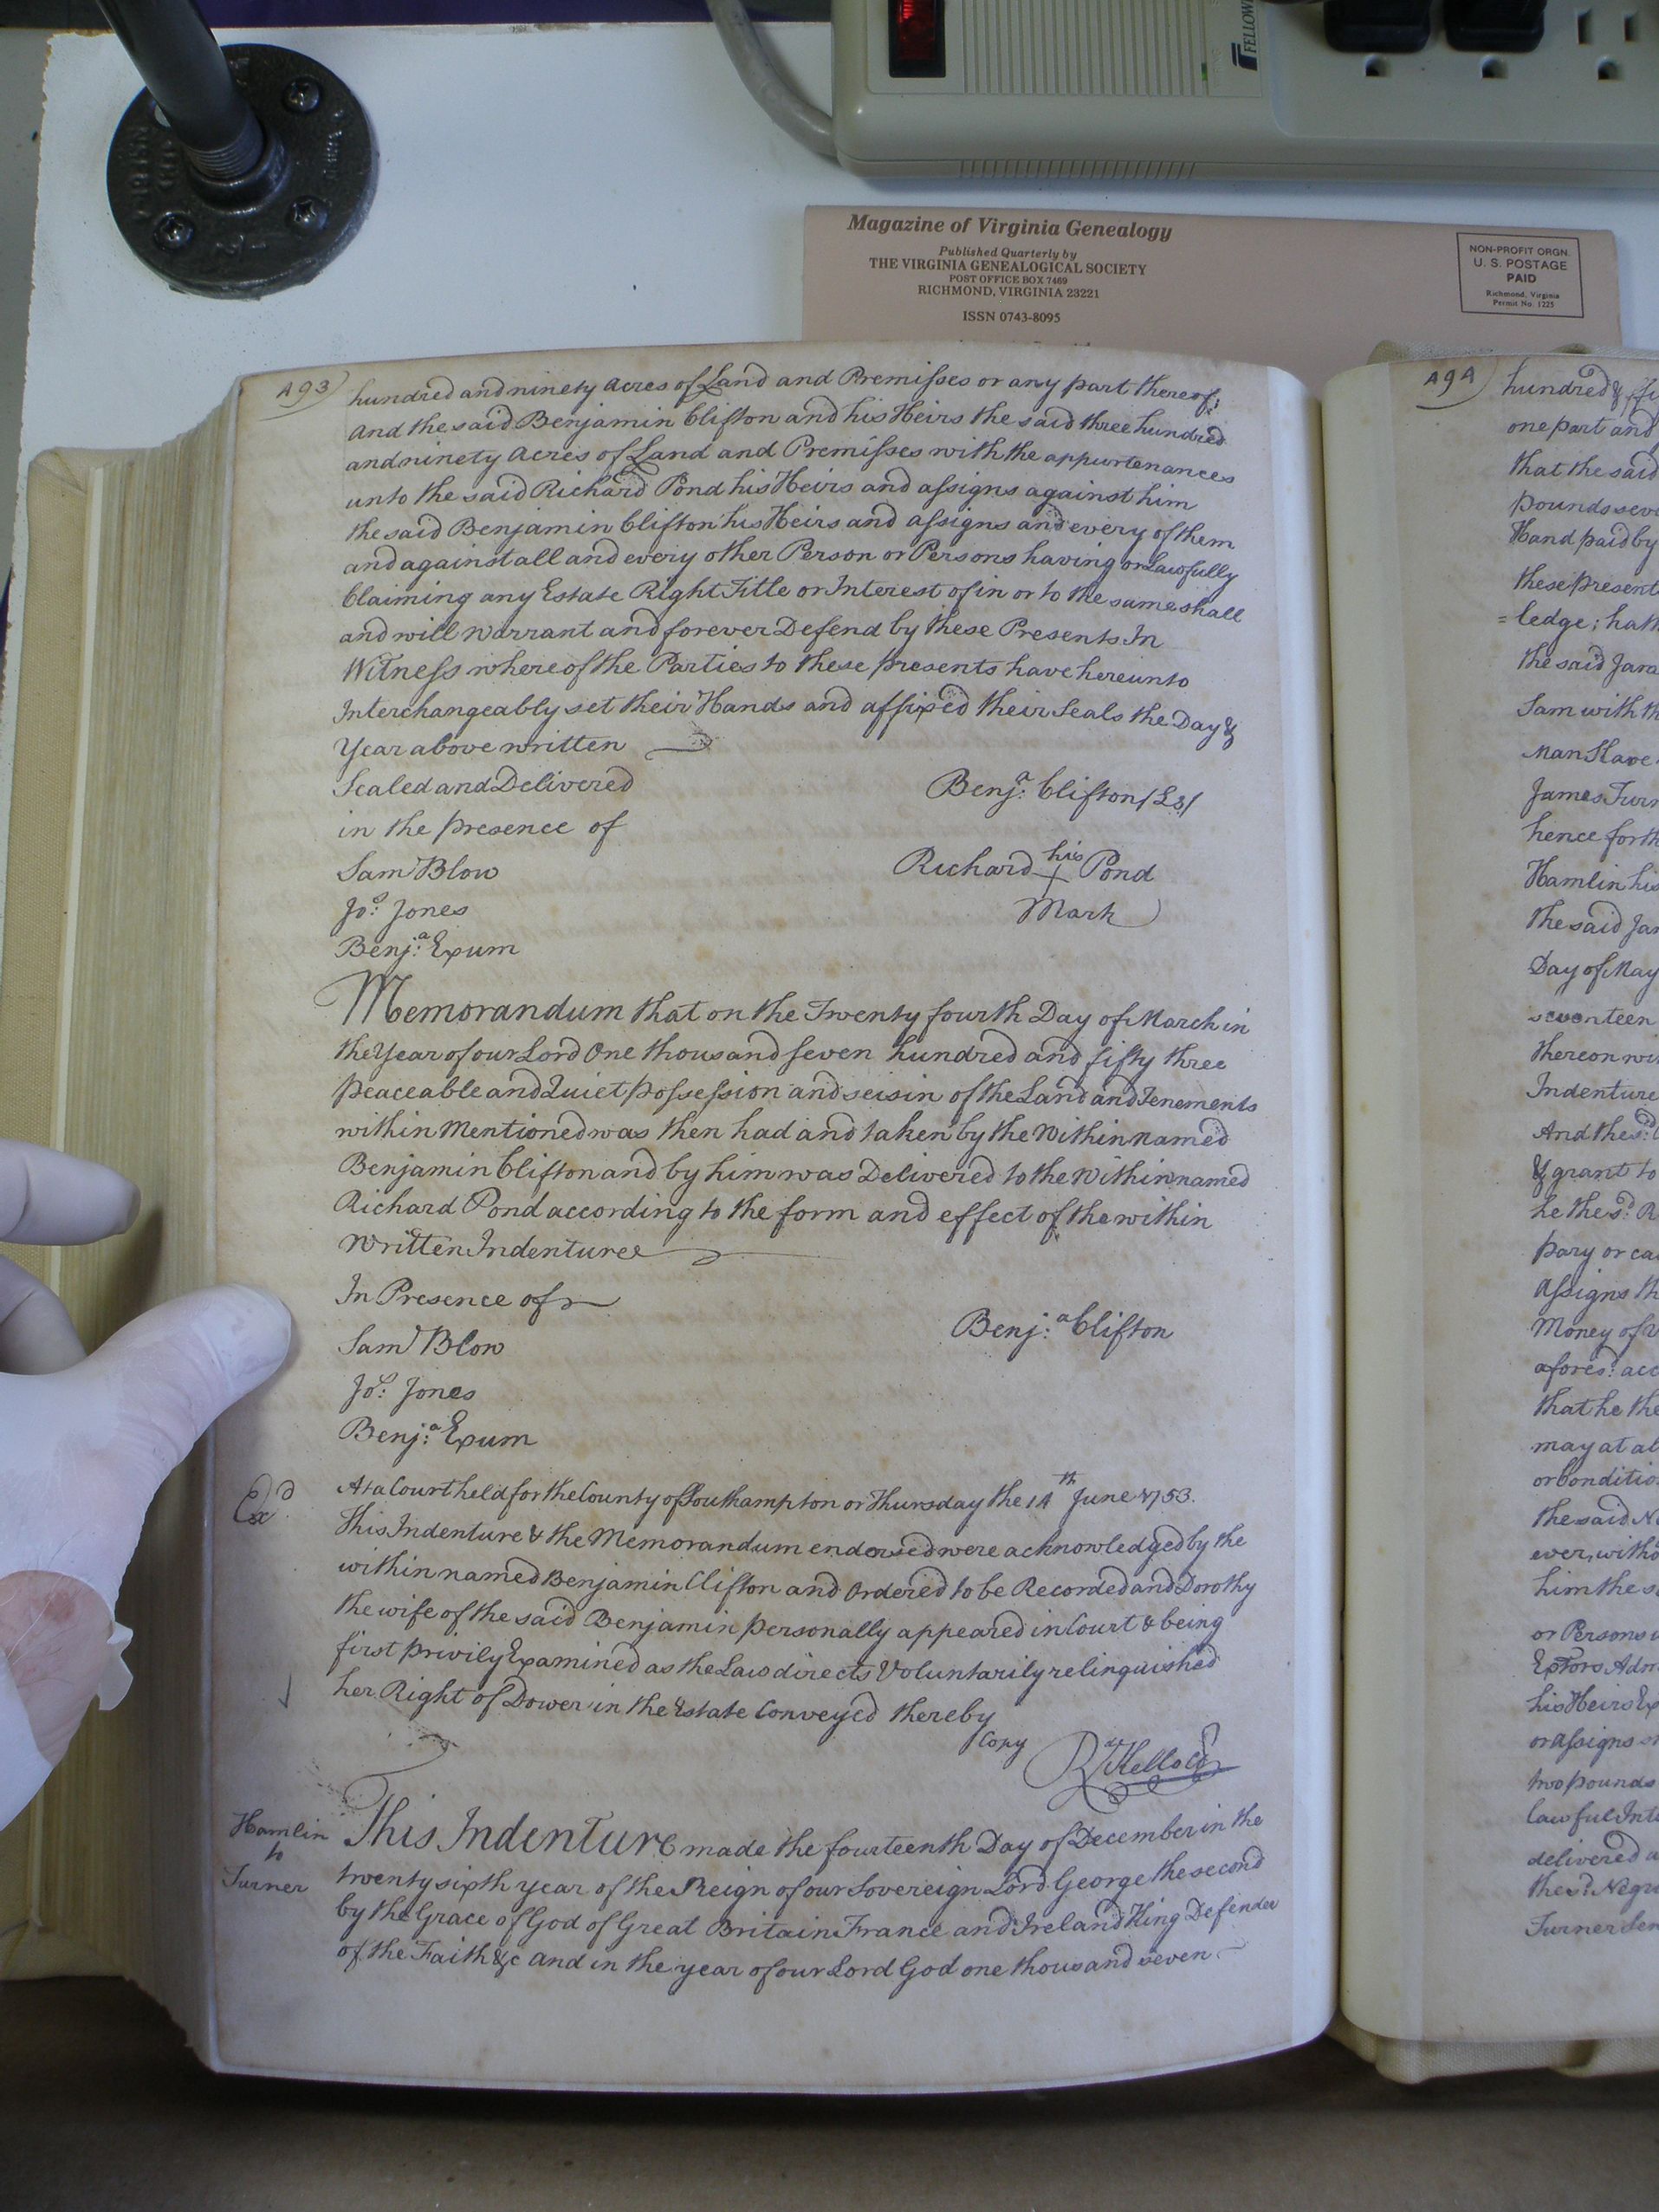 FELLOW
Magazine of Virginia Genealogy
Published Quarterly by
THE VIRGINIA GENEALOGICAL SOCIETY
POST OFFICE BOX 7469
RICHMOND, VIRGINIA 23221
ISSN 0743-8095
NON-PROFIT ORGN.
U. S. POSTAGE
PAID
Richmond, Virginia
Permit No. 1225
493)
hundred and ninety Acres of Land and Premisses or any part thereof;
And the said Benjamin Clifton and his Heirs the said three hundred
and ninety Acres of Land and Premisses with the appurtenances
unto the said Richard Pond his Heirs and assigns against him
the said Benjamin Clifton his Heirs and assigns and every of them
and against all and every other Person or Persons having or Lawfully
Claiming any Estate Right Title or Interest of in or to the same shall
and will warrant and forever Defend by these Presents In
Witness whereof the Parties to these presents have hereunto
Interchangeably set their Hands and affixed their Seals the Day &
Year above written
Sealed and Delivered
in the presence of
Saml Blow
Jos: Jones
Benja: Exum
Benja: Clifton (LS)
Richard his + Pond
Mark
Memorandum that on the Twenty fourth Day of March in
the Year of our Lord One thousand seven hundred and fifty three
peaceable and Quiet possession and seisin of the Land and Tenements
within Mentioned was then had and taken by the Within named
Benjamin Clifton and by him was Delivered to the Within named
Richard Pond according to the form and effect of the within
Written Indenture
In Presence of
Saml Blow
Jos: Jones
Benja: Exum
Benja: Clifton
Exd
At a Court held for the County of Southampton on Thursday the 14th June 1753.
This Indenture & the Memorandum endorsed were acknowledged by the
within named Benjamin Clifton and Ordered to be Recorded and Dorothy
the wife of the said Benjamin personally appeared in Court & being
first privily Examined as the Law directs Voluntarily relinquished
her Right of Dower in the Estate Conveyed thereby
Copy
Rd Kello CC
Hamlin
to
Turner
This Indenture made the fourteenth Day of December in the
twenty sixth year of the Reign of our Sovereign Lord George the second
by the Grace of God of Great Britain France and Ireland King Defender
of the Faith &c and in the year of our Lord God one thousand seven
494)
hundred &
one part and
that the said
pounds
Hand paid by
these present
= ledge; hath
the said
Sam with th
Man Slave
James Turn
hence forth
Hamlin his
the said
Day of May
seventeen
thereon
Indenture
And the sd:
& grant to
he the sd: R
pay or
Assigns th
Money of
afores: acc
that he the
may at al
or Conditio
the said
ever, witho
him the s
or Persons
Extors Adm
his Heirs Ex
or assigns
two pounds
lawful Int
delivered
the sd Negr
Turner